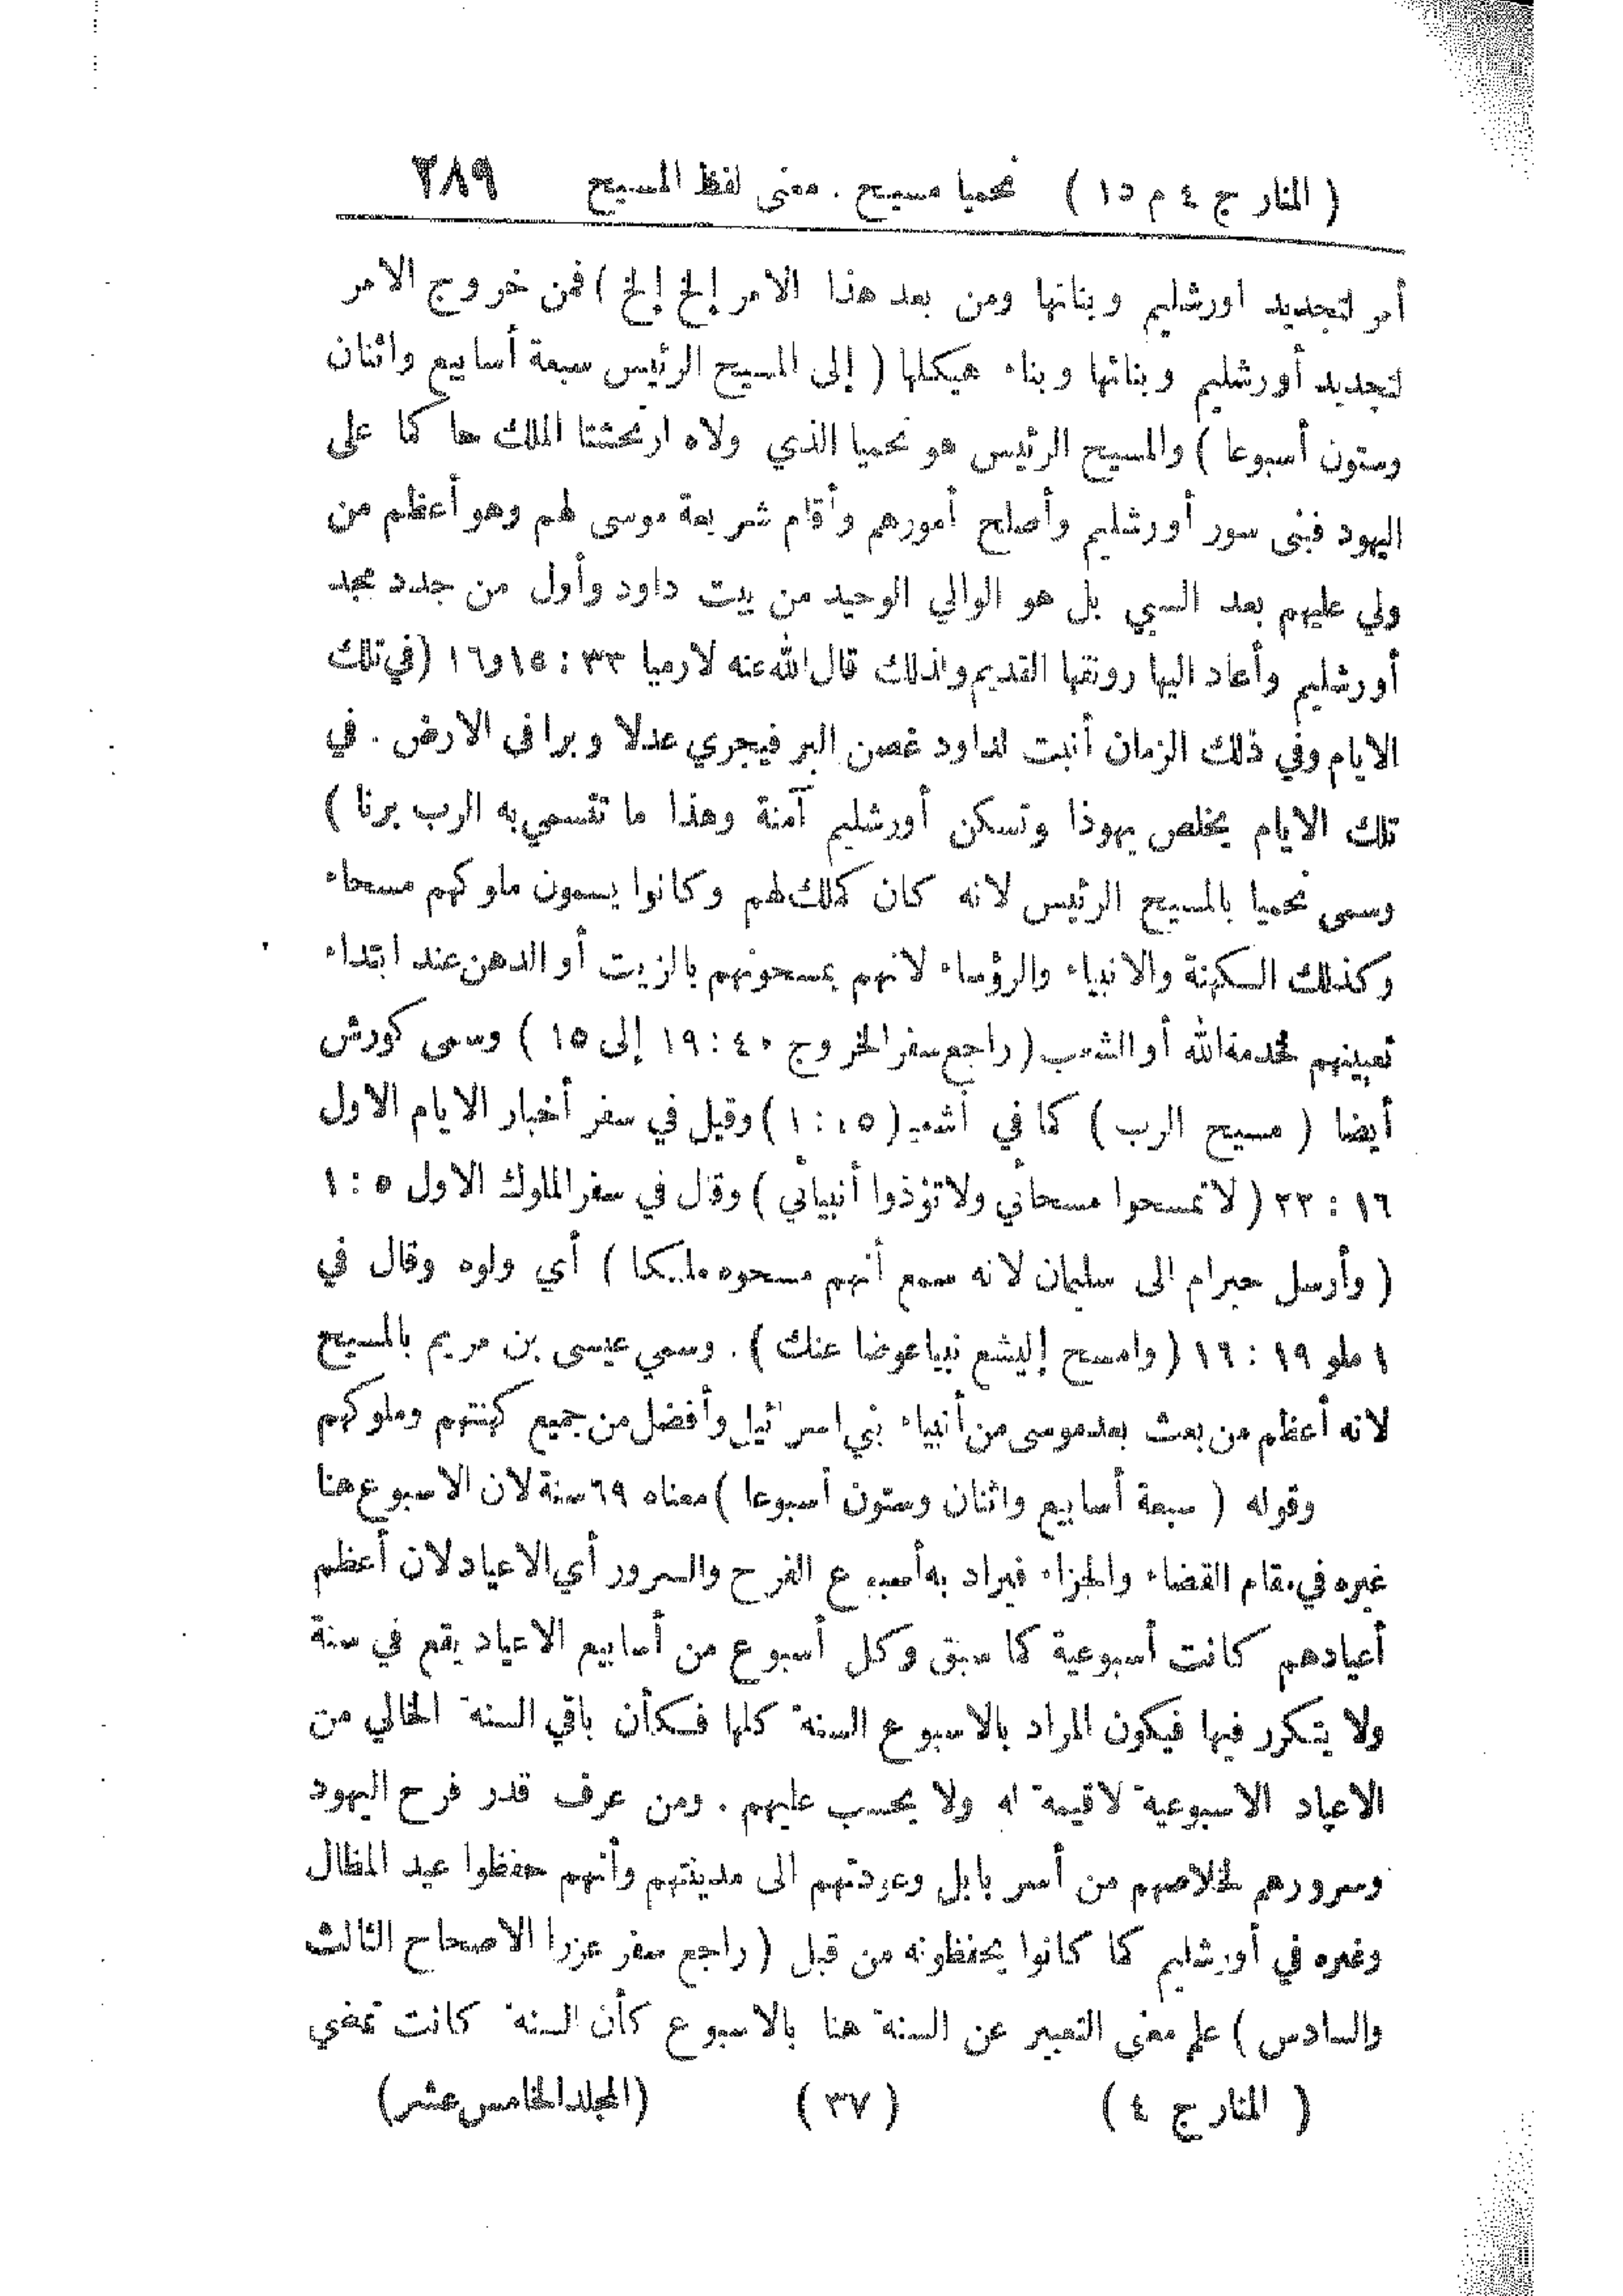 ( المنار ج ٤ م ١٥ ) نحميا مسيح . معنى لفظ المسيح ٢٨٩
أمر لتجديد اورشليم وبنائها ومن بعد هذا الامر إلخ إلخ ) فمن خروج الامر
لتجديد أورشليم وبنائها وبناء هيكلها ( إلى المسيح الرئيس سبعة أسابيع واثنان
وستون أسبوعا ) والمسيح الرئيس هو نحميا الذي ولاه ارتحشتا الملك حاكما على
اليهود فبنى سور أورشليم وأصلح أمورهم وأقام شريعة موسى لهم وهو أعظم من
ولي عليهم بعد السبي بل هو الوالي الوحيد من بيت داود وأول من جدد مجد
أورشليم وأعاد اليها رونقها القديم ولذلك قال الله عنه لارميا ٣٣ : ١٥ و١٦ (في تلك
الايام وفي ذلك الزمان أنبت لداود غصن البر فيجري عدلا وبرا في الارض . في
تلك الايام يخلص يهوذا وتسكن أورشليم آمنة وهذا ما تتسمى به الرب برنا )
وسمى نحميا بالمسيح الرئيس لانه كان كملك لهم وكانوا يسمون ملوكهم مسحاء
وكذلك الكهنة والانبياء والرؤساء لانهم يمسحونهم بالزيت أو الدهن عند ابتداء
تعيينهم لخدمة الله أو الشعب ( راجع سفر الخروج ٤٠ : ١٩ إلى ١٥ ) وسمى كورش
أيضا ( مسيح الرب ) كما في أشعيا (٤٥ : ١ ) وقيل في سفر أخبار الايام الاول
١٦ : ٢٢ ( لا تمسحوا مسحائي ولا تؤذوا أنبيائي ) وقال في سفر الملوك الاول ٥ : ١
( وأرسل حيرام الى سليمان لانه سمع أنهم مسحوه ملكا ) أي ولوه وقال في
١ ملو ١٩ : ١٦ ( وامسح إليشع نبيا عوضا عنك ) . وسمي عيسى بن مريم بالمسيح
لانه أعظم من بعث بعد موسى من أنبياء بني اسرائيل وأفضل من جميع كهنتهم وملوكهم
وقوله ( سبعة أسابيع واثنان وستون أسبوعا ) معناه ٦٩ سنة لان الاسبوع هنا
غيره في مقام القضاء والجزاء فيراد به أسبوع الفرح والسرور أي الاعياد لان أعظم
أعيادهم كانت أسبوعية كما سبق وكل أسبوع من أسابيع الاعياد يقع في سنة
ولا يتكرر فيها فيكون المراد بالاسبوع السنة كلها فكأن باقي السنة الخالي من
الاعياد الاسبوعية لا قيمة له ولا يحسب عليهم . ومن عرف قدر فرح اليهود
وسرورهم لخلاصهم من أسر بابل وعودتهم الى مدينتهم وأنهم حفظوا عيد المظال
وغيره في أورشليم كما كانوا يحفظونه من قبل ( راجع سفر عزرا الاصحاح الثالث
والسادس ) علم معنى التعبير عن السنة هنا بالاسبوع كأن السنة كانت تمضي
( المنار ج ٤ ) ( ٣٧ ) (المجلد الخامس عشر)